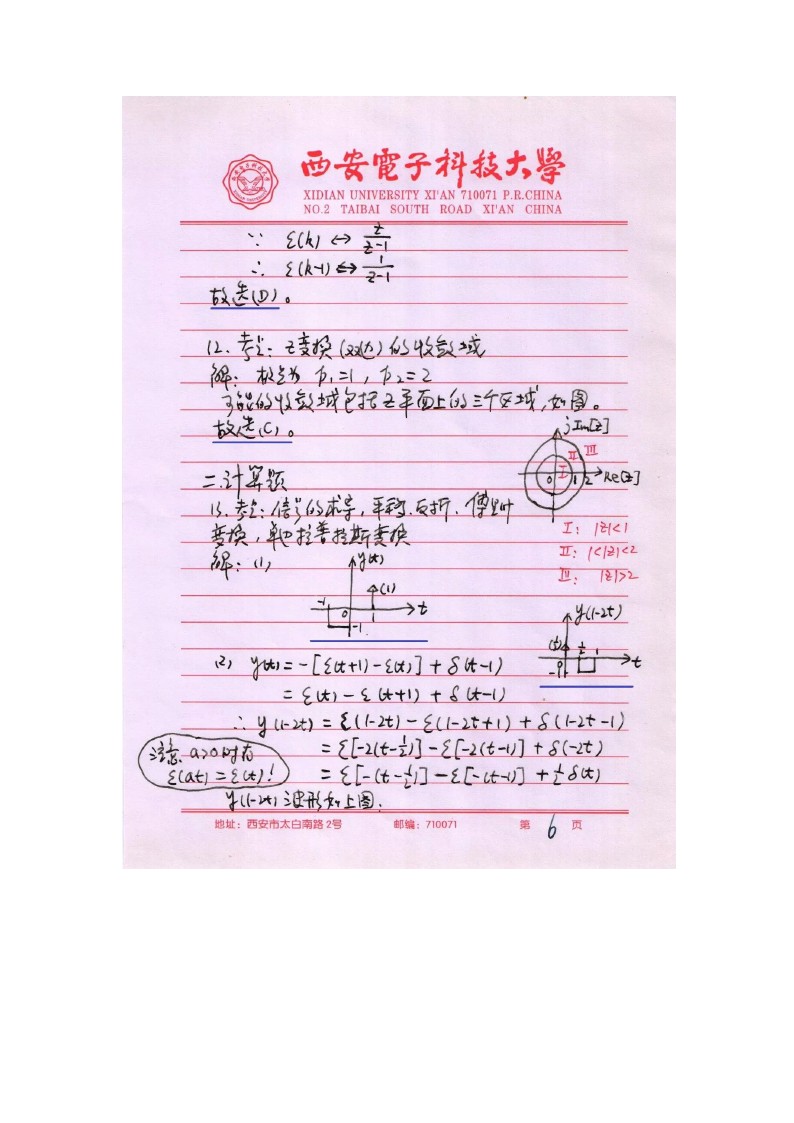 西安電子科技大學
XIDIAN UNIVERSITY XI'AN 710071 P.R.CHINA
NO.2 TAIBAI SOUTH ROAD XI'AN CHINA
∵ ε(k) ↔ z/(z-1)
∴ ε(k-1) ↔ 1/(z-1)
故选(D)。
12、考点：z变换(双边)的收敛域
解：极点为 p₁=1，p₂=2
可能的收敛域包括z平面上的三个区域，如图。
故选(C)。
jIm[z]
Ⅱ Ⅲ
0 Ⅰ 1 2 Re[z]
Ⅰ: |z|<1
Ⅱ: 1<|z|<2
Ⅲ: |z|>2
二.计算题
13、考点：信号的求导，平移、反折、傅里叶
变换，单边拉普拉斯变换
解：(1)
y(t)
-1 0 (1) 1 t
-1
y(1-2t)
(½) ½ 1
0 t
-1
(2) y(t) = -[ε(t+1)-ε(t)] + δ(t-1)
= ε(t) - ε(t+1) + δ(t-1)
∴ y(1-2t) = ε(1-2t) - ε(1-2t+1) + δ(1-2t-1)
= ε[-2(t-½)] - ε[-2(t-1)] + δ(-2t)
= ε[-(t-½)] - ε[-(t-1)] + ½δ(t)
注意、a>0时有
ε(at) = ε(t)!
y(1-2t)波形如上图.
地址：西安市太白南路2号 邮编：710071 第 6 页